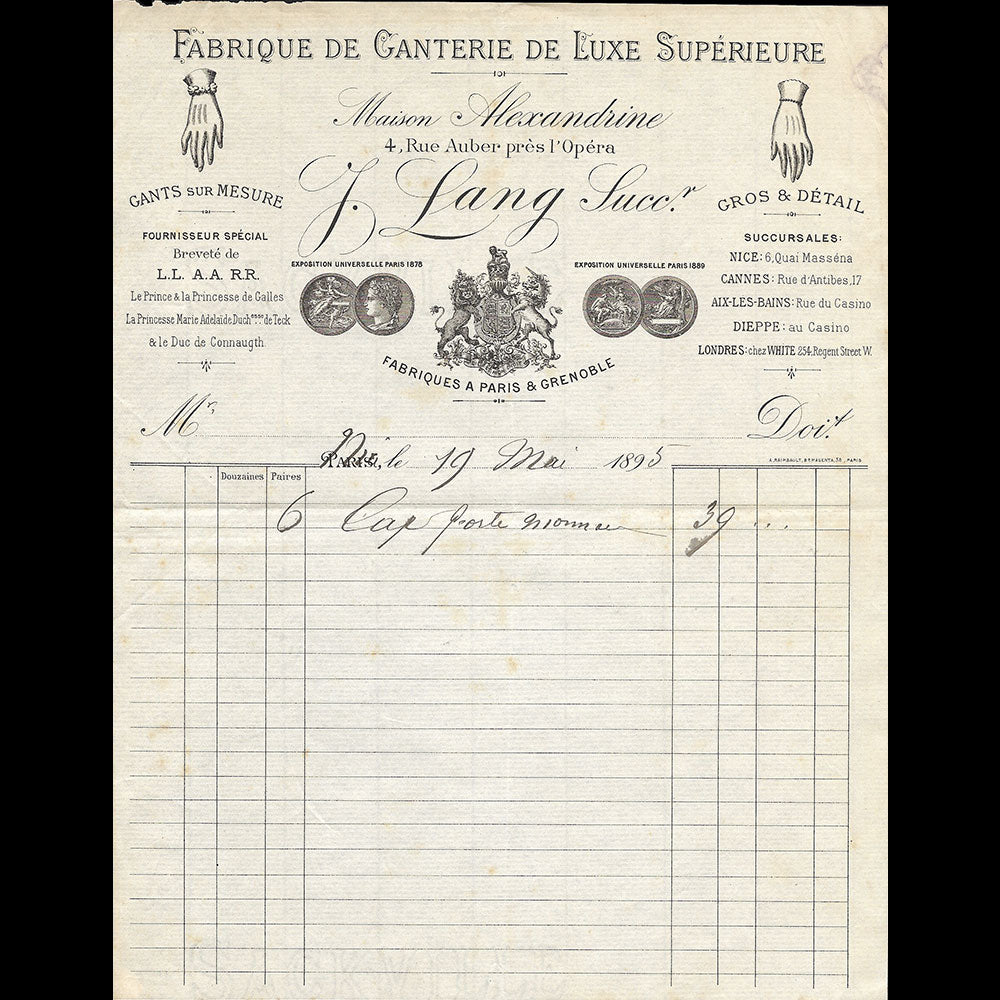 FABRIQUE DE GANTERIE DE LUXE SUPÉRIEURE
Maison Alexandrine
4, Rue Auber près l'Opéra
J. Lang Succ.r
GANTS SUR MESURE
FOURNISSEUR SPÉCIAL
Breveté de
L.L. A.A. R.R.
Le Prince & la Princesse de Galles
La Princesse Marie Adelaïde Duchesse de Teck
& le Duc de Connaugth
EXPOSITION UNIVERSELLE PARIS 1878
EXPOSITION UNIVERSELLE PARIS 1889
FABRIQUES A PARIS & GRENOBLE
GROS & DÉTAIL
SUCCURSALES:
NICE: 6, Quai Masséna
CANNES: Rue d'Antibes, 17
AIX-LES-BAINS: Rue du Casino
DIEPPE: au Casino
LONDRES: chez WHITE 254, Regent Street W.
Mr. Doit
PARIS, le 19 Mai 1895
A. RAIMBAULT, BT MAGENTA, 38, PARIS
Douzaines Paires
6 Cap porte monnaie 39 ...